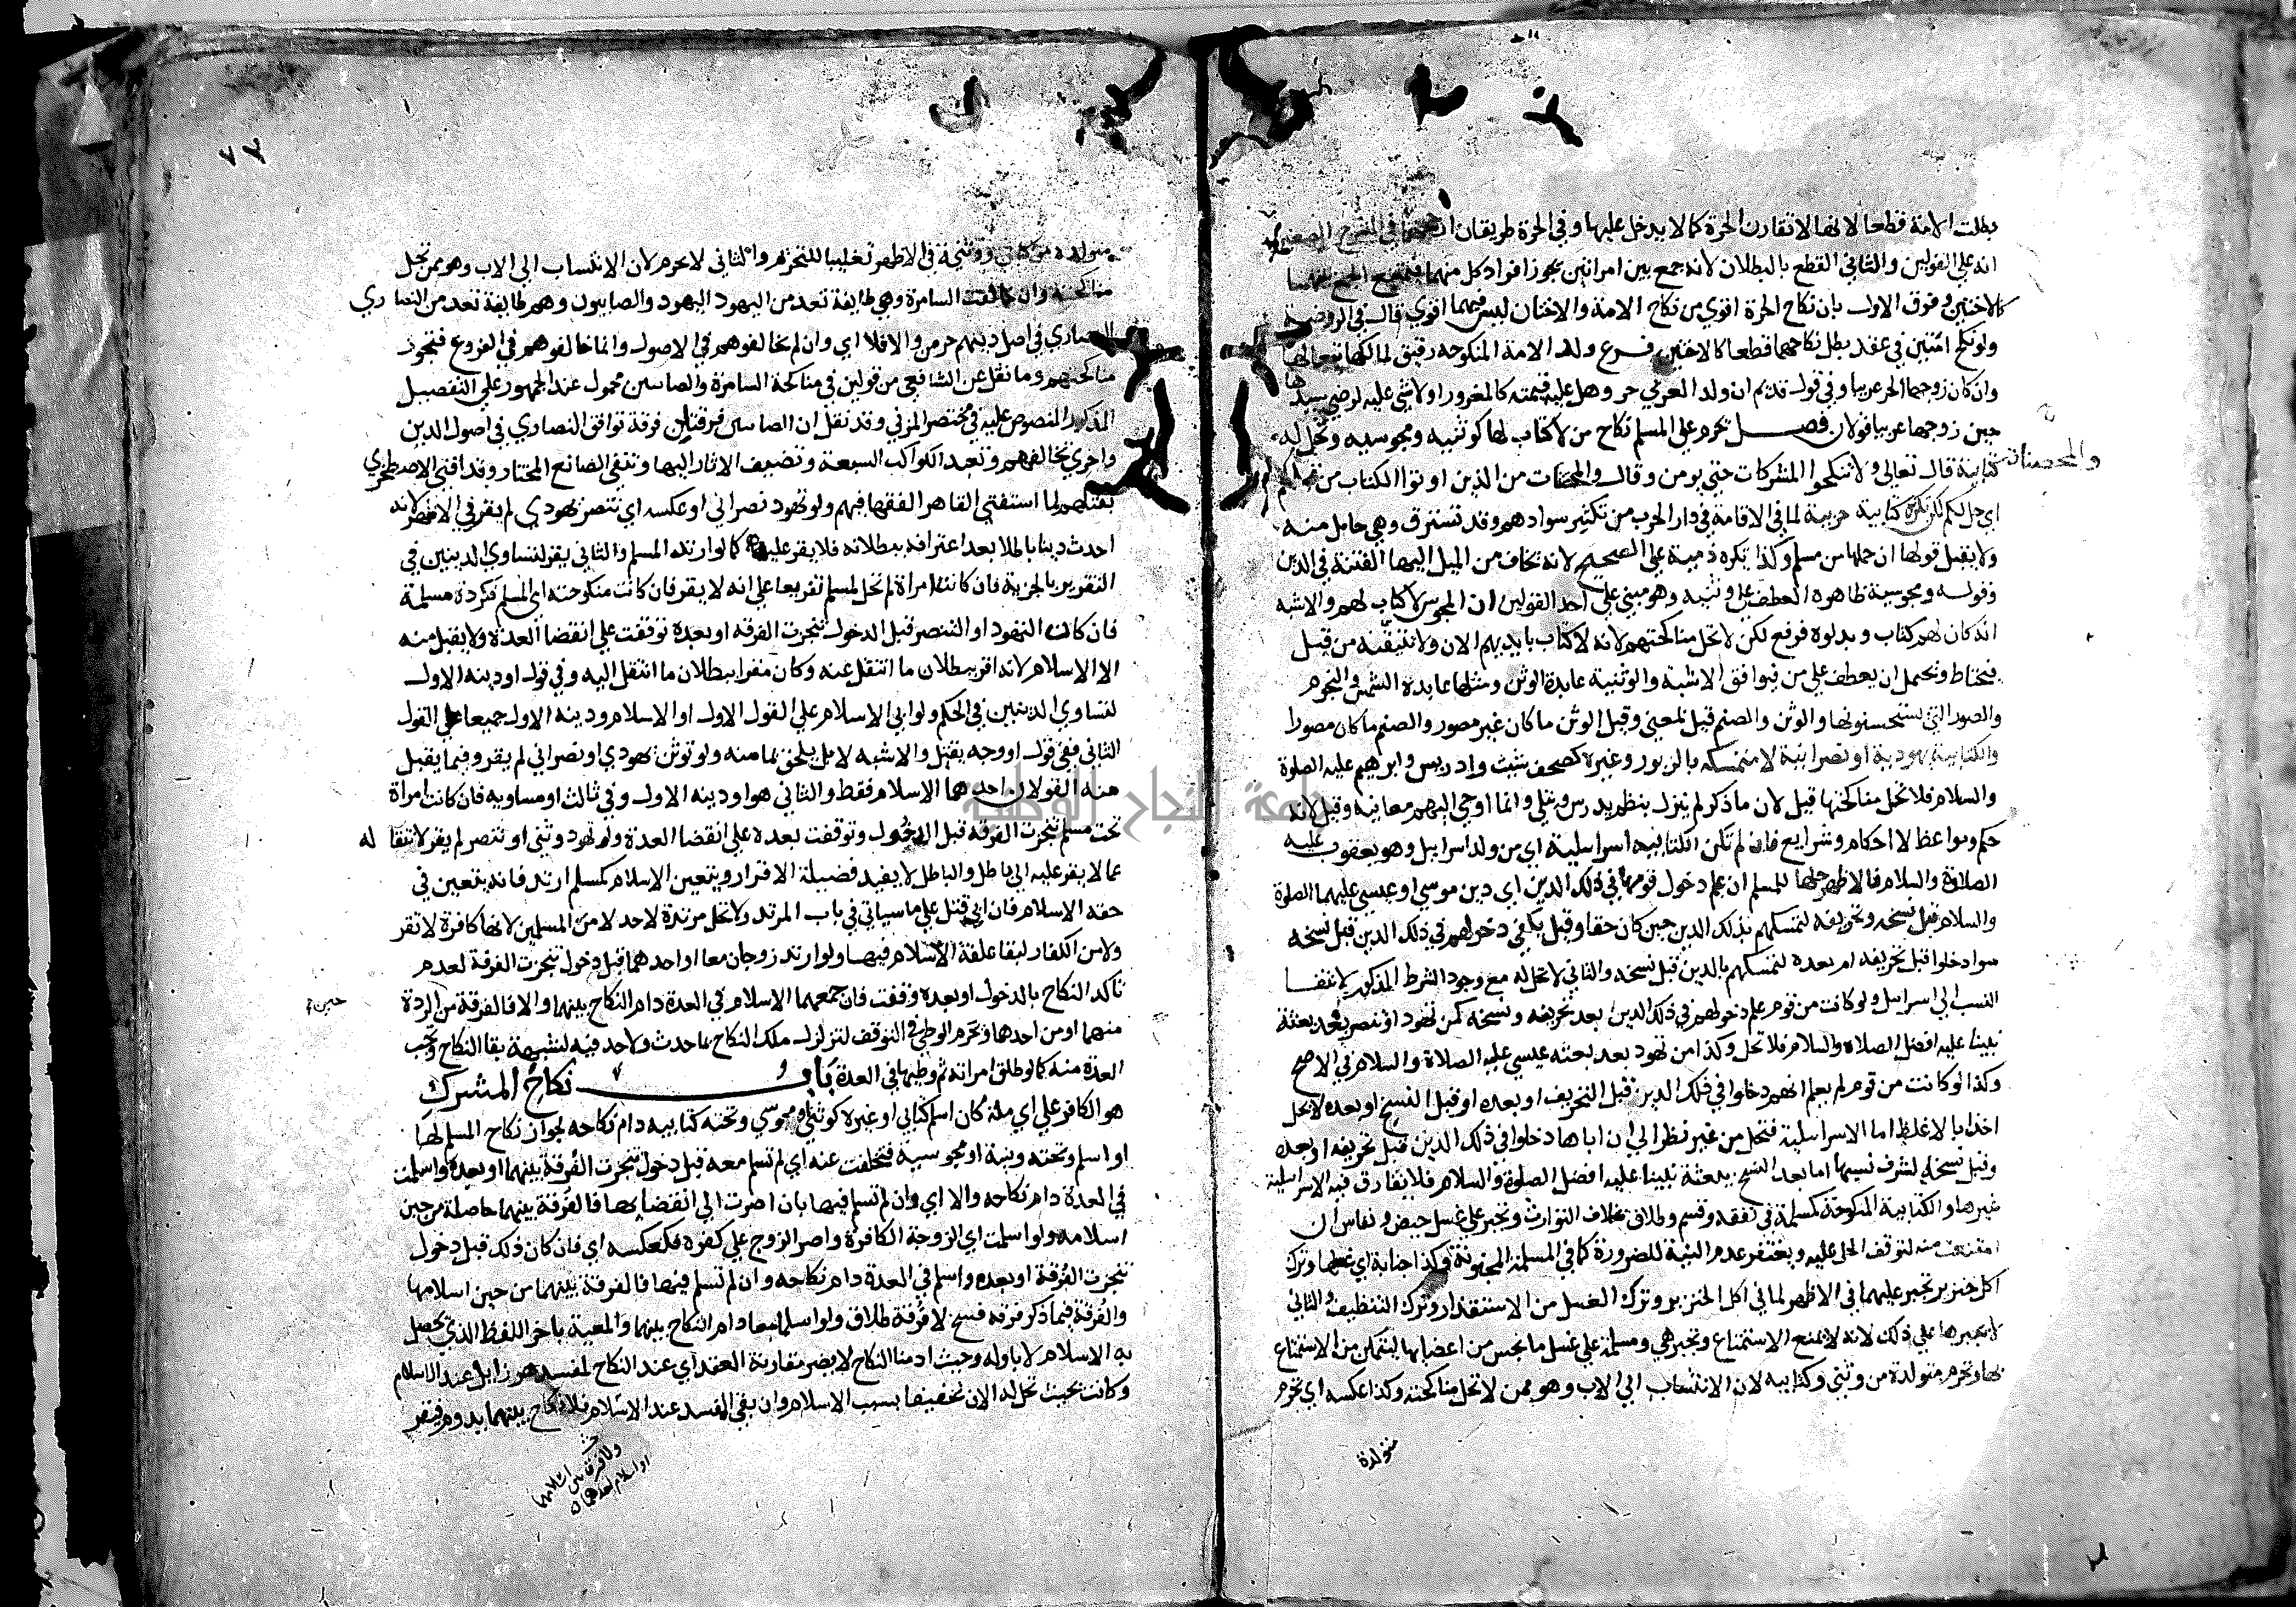 بطلت الامة قطعا لانها لا تقارن الحرة كما لا يدخل عليها وفي الحرة طريقان
انه علي القولين والثاني القطع بالبطلان لانه جمع بين امراتين يجوز افراد كل منهما فيمتنع الجمع بينهما
كالاختين وفرق الاول بان نكاح الحرة اقوي من نكاح الامة والاختان ليس فيهما اقوي قال في الروضة
ولو نكح اثنتين في عقد بطل نكاحهما قطعا كالاختين فرع ولد الامة المنكوحة رقيق لمالكها تبعا لها
وان كان زوجها الحر عربيا وفي قول قديم ان ولد العربي حر وهل عليه قيمته كالمغرور او لا شي عليه لرضي سيدها
حين زوجها عربيا قولان فصل يحرم علي المسلم نكاح من لا كتاب لها كوثنيه ومجوسيه وتحل له
كتابية قال تعالي ولا تنكحوا المشركات حتي يومن وقال والمحصنات من الذين اوتوا الكتاب من قبلكم
والمحصنات
اي حل لكم لكن تكره كتابية حربية لما في الاقامة في دار الحرب من تكثير سوادهم وقد تسترق وهي حامل منه
ولا يقبل قولها ان حملها من مسلم وكذا تكره ذمية علي الصحيح لانه يخاف من الميل اليها الفتنة في الدين
وقوله ومجوسية ظاهره العطف علي وثنيه وهو مبني علي احد القولين ان المجوس لا كتاب لهم والاشبه
انه كان لهم كتاب وبدلوه فرفع لكن لا تحل مناكحتهم لانه لا كتاب بايديهم الان ولا نتيقنه من قبل
فيحتاط ويحتمل ان يعطف علي من فيوافق الاشبه والوثنية عابدة الوثن ومثلها عابدة الشمس والنجوم
والصور التي يستحسنونها والوثن والصنم قيل بمعني وقيل الوثن ما كان غير مصور والصنم ما كان مصورا
والكتابية يهودية او نصرانية لا متمسكه بالزبور وغيره كصحف شيث وادريس وابرهيم عليه الصلوة
والسلام فلا تحل مناكحتها قيل لان ما ذكر لم ينزل بنظم يدرس ويتلي وانما اوحي اليهم معانيه وقيل لانه
حكم ومواعظ لا احكام وشرايع فان لم تكن الكتابيه اسراييلية اي من ولد اسراييل وهو يعقوب عليه
الصلاة والسلام فالاظهر حلها للمسلم ان علم دخول قومها في ذلك الدين اي دين موسي او عيسي عليهما الصلوة
والسلام قبل نسخه وتحريفه لتمسكهم بذلك الدين حين كان حقا وقيل يكفي دخولهم في ذلك الدين قبل نسخه
سوا دخلوا قبل تحريفه ام بعده لتمسكهم بالدين قبل نسخه والثاني لا تحل له مع وجود الشرط المذكور لانتفا
النسب الي اسراييل ولو كانت من قوم علم دخولهم في ذلك الدين بعد تحريفه ونسخه كمن تهود او تنصر بعد بعثة
نبينا عليه افضل الصلاة والسلام فلا تحل وكذا من تهود بعد بعثه عيسي عليه الصلاة والسلام في الاصح
وكذا لو كانت من قوم لم يعلم انهم دخلوا في ذلك الدين قبل التحريف او بعده او قبل النسخ او بعده لا تحل
اخذا بالاغلظ اما الاسراييلية فتحل من غير نظر الي ان اباها دخلوا في ذلك الدين قبل تحريفه او بعده
وقبل نسخه لشرف نسبها اما بعد النسخ ببعثة نبينا عليه افضل الصلوة والسلام فلا تفارق فيه الاسراييلية
غيرها والكتابية المنكوحة كمسلمة في نفقه وقسم وطلاق بخلاف التوارث وتجبر علي غسل حيض ونفاس ان
امتنعت منه لتوقف الحل عليه ويغتفر عدم النية للضرورة كما في المسلمة المجنونة وكذا جنابة اي غسلها وترك
اكل خنزير تجبر عليهما في الاظهر لما في اكل الخنزير وترك الغسل من الاستقذار وترك التنظيف والثاني
لا يجبرها علي ذلك لانه لا يمنع الاستمتاع وتجبر هي ومسلمة علي غسل ما نجس من اعضايها ليتمكن من الاستمتاع
بها وتحرم متولدة من وثني وكتابيه لان الانتساب الي الاب وهو ممن لا تحل مناكحته وكذا عكسه اي تحرم
متولدة
٧٢
متولدة من كتابي ووثنية في الاظهر تغليبا للتحريم والثاني لا تحرم لان الانتساب الي الاب وهو ممن تحل
مناكحته وان خالفت السامرة وهي طايفة تعد من اليهود اليهود والصابيون وهم طايفة تعد من النصاري
النصاري في اصل دينهم حرمن والا فلا اي وان لم يخالفوهم في الاصول وانما خالفوهم في الفروع فتجوز
مناكحتهم وما نقل عن الشافعي من قولين في مناكحة السامرة والصابيين محمول عند الجمهور علي التفصيل
المذكور المنصوص عليه في مختصر المزني وقد نقل ان الصابيين فرقتان فرقة توافق النصاري في اصول الدين
واخري تخالفهم وتعبد الكواكب السبعة وتضيف الاثار اليها وتنفي الصانع المختار وقد افتي الاصطخري
بقتلهم لما استفتي القاهر الفقها فيهم ولو تهود نصراني او عكسه اي تنصر يهودي لم يقر في الاظهر لانه
احدث دينا باطلا بعد اعترافه ببطلانه فلا يقر عليه كما لو ارتد المسلم والثاني يقر لتساوي الدينين في
التقرير بالجزية فان كانت امراة لم تحل لمسلم تفريعا علي انه لا يقر فان كانت منكوحته اي المسلم فكردة مسلمة
فان كانت التهود او التنصر قبل الدخول تنجزت الفرقه او بعده توقفت علي انقضا العدة ولا يقبل منه
الا الاسلام لانه اقر ببطلان ما انتقل عنه وكان مقرا ببطلان ما انتقل اليه وفي قول او دينه الاول
لتساوي الدينين في الحكم ولو ابي الاسلام علي القول الاول او الاسلام ودينه الاول جميعا علي القول
الثاني ففي قول او وجه يقتل والاشبه لا بل يلحق بمامنه ولو توثن يهودي او نصراني لم يقر وفيما يقبل
منه القولان احدهما الاسلام فقط والثاني هو او دينه الاول وفي ثالث او مساويه فان كانت امراة
تحت مسلم تنجزت الفرقه قبل الدخول وتوقفت بعده علي انقضا العدة ولو تهود وثني او تنصر لم يقر لانتقاله
عما لا يقر عليه الي باطل والباطل لا يفيد فضيلة الاقرار ويتعين الاسلام كمسلم ارتد فانه يتعين في
حقه الاسلام فان ابي قتل علي ما سياتي في باب المرتد ولا تحل مرتدة لاحد لا من المسلمين لانها كافرة لا تقر
ولا من الكفار لبقا علقة الاسلام فيها ولو ارتد زوجان معا او احدهما قبل دخول تنجزت الفرقة لعدم
تاكد النكاح بالدخول او بعده وقفت فان جمعهما الاسلام في العدة دام النكاح بينهما والا فالفرقة من الردة
حين
منهما او من احدهما ويحرم الوطي في التوقف لتزلزل ملك النكاح بما حدث ولا حد فيه لشبهة بقا النكاح وتجب
العدة منه كما لو طلق امراته ثم وطيها في العدة باب نكاح المشرك
هو الكافر علي اي ملة كان اسلم كتابي او غيره كوثني ومجوسي وتحته كتابيه دام نكاحه لجواز نكاح المسلم لها
او اسلم وتحته وثنية او مجوسية فتخلفت عنه اي لم تسلم معه قبل دخول تنجزت الفرقة بينهما او بعده واسلمت
في العدة دام نكاحه والا اي وان لم تسلم فيها بان اصرت الي انقضايها فالفرقة بينهما حاصلة من حين
اسلامه ولو اسلمت اي الزوجة الكافرة واصر الزوج علي كفره فكعكسه اي فان كان ذلك قبل دخول
تنجزت الفرقة او بعده واسلم في العدة دام نكاحه وان لم تسلم فيها فالفرقة بينهما من حين اسلامها
والفرقة فيما ذكر فرقه فسخ لا فرقة طلاق ولو اسلما معا دام النكاح بينهما والمعية باخر اللفظ الذي يحصل
به الاسلام لا باوله وحيث ادمنا النكاح لا يضر مقارنة العقد اي عند النكاح لمفسد هو زايل عند الاسلام
وكانت بحيث تحل له الان تخفيفا بسبب الاسلام وان بقي المفسد عند الاسلام فلا نكاح بينهما يدوم فيقر